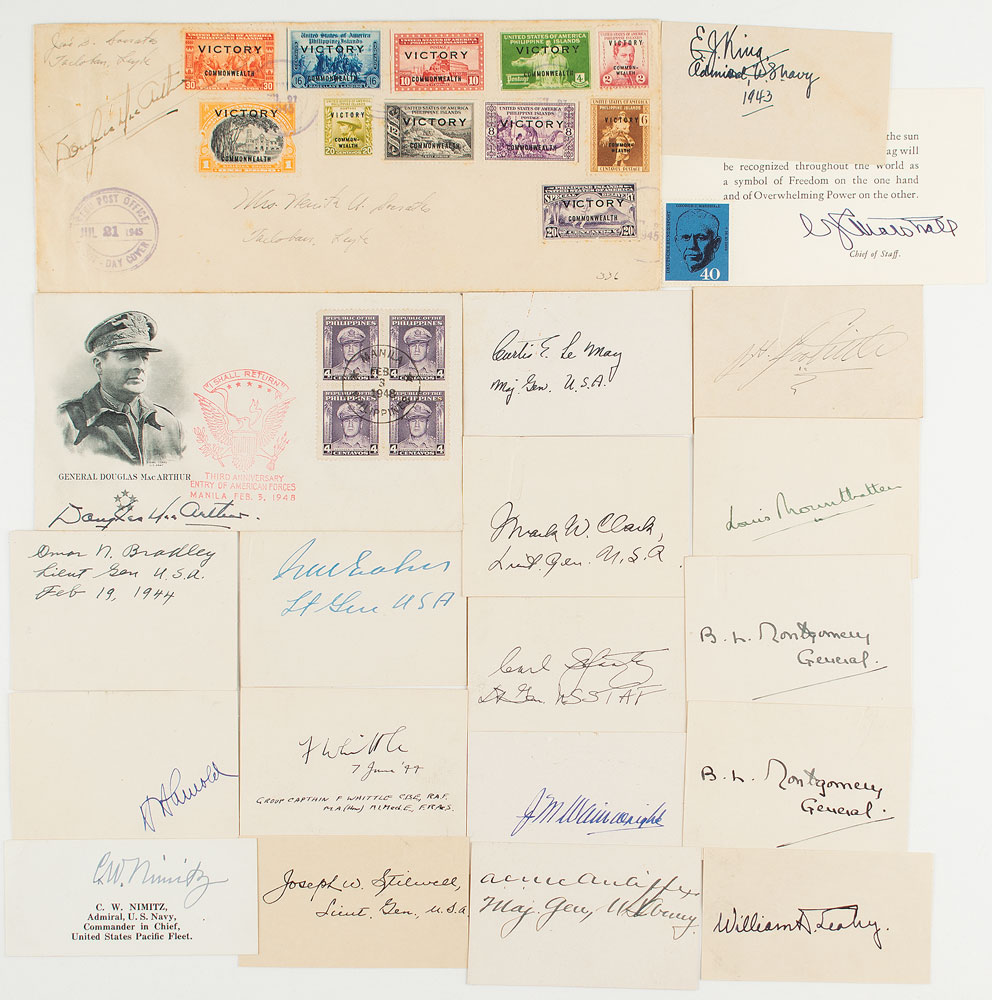 Jose G.
Tacloban, Leyte
Douglas MacArthur
VICTORY
COMMONWEALTH
30 30
UNITED STATES OF AMERICA
PHILIPPINE ISLANDS
VICTORY
COMMONWEALTH
16 16
VICTORY
COMMONWEALTH
10 10
UNITED STATES OF AMERICA
PHILIPPINE ISLANDS
VICTORY
COMMONWEALTH
4
VICTORY
COMMON-
WEALTH
2 2
VICTORY
COMMONWEALTH
1 1
VICTORY
COMMON-
WEALTH
20 20
UNITED STATES OF AMERICA
PHILIPPINE ISLANDS
VICTORY
COMMONWEALTH
12
UNITED STATES OF AMERICA
PHILIPPINE ISLANDS
VICTORY
COMMONWEALTH
8 8
UNITED STATES OF AMERICA
PHILIPPINE ISLANDS
VICTORY
COMMON-
WEALTH
6
CENTAVOS POSTAGE
PHILIPPINE ISLANDS
UNITED STATES OF AMERICA
VICTORY
COMMONWEALTH
20 20
POST OFFICE
JUL 21 1945
DAY COVER
Mrs
Tacloban, Leyte
336
E J King
Admiral, U.S. Navy
1943
the sun
ag will
be recognized throughout the world as
a symbol of Freedom on the one hand
and of Overwhelming Power on the other.
GEORGE C. MARSHALL
40
G C Marshall
Chief of Staff.
I SHALL RETURN
THIRD ANNIVERSARY
ENTRY OF AMERICAN FORCES
MANILA FEB. 3, 1948
GENERAL DOUGLAS MACARTHUR
Douglas MacArthur.
REPUBLIC OF THE
PHILIPPINES
4 4
CENTAVOS
REPUBLIC OF THE
PHILIPPINES
4 4
CENTAVOS
4 4
CENTAVOS
4 4
CENTAVOS
MANILA
FEB
3
1948
PHILIPPINES
Curtis E. Le May
Maj. Gen. U.S.A.
Mark W. Clark,
Lieut. Gen. U.S.A
Louis Mountbatten
Omar N. Bradley
Lieut Gen U.S.A.
Feb 19, 1944
Lt Gen USA
Carl Spaatz
Lt Gen USSTAF
B. L. Montgomery
General.
H H Arnold
F Whittle
7 June '44
GROUP CAPTAIN F WHITTLE CBE, RAF.
M.A (Hon) M.I.Mech.E, F.R.Ae.S.
J M Wainwright
B. L. Montgomery
General.
C.W. Nimitz
C. W. NIMITZ,
Admiral, U. S. Navy,
Commander in Chief,
United States Pacific Fleet.
Joseph W. Stilwell,
Lieut. Gen, U.S.A
A C McAuliffe
Maj. Gen, US Army
William D. Leahy.